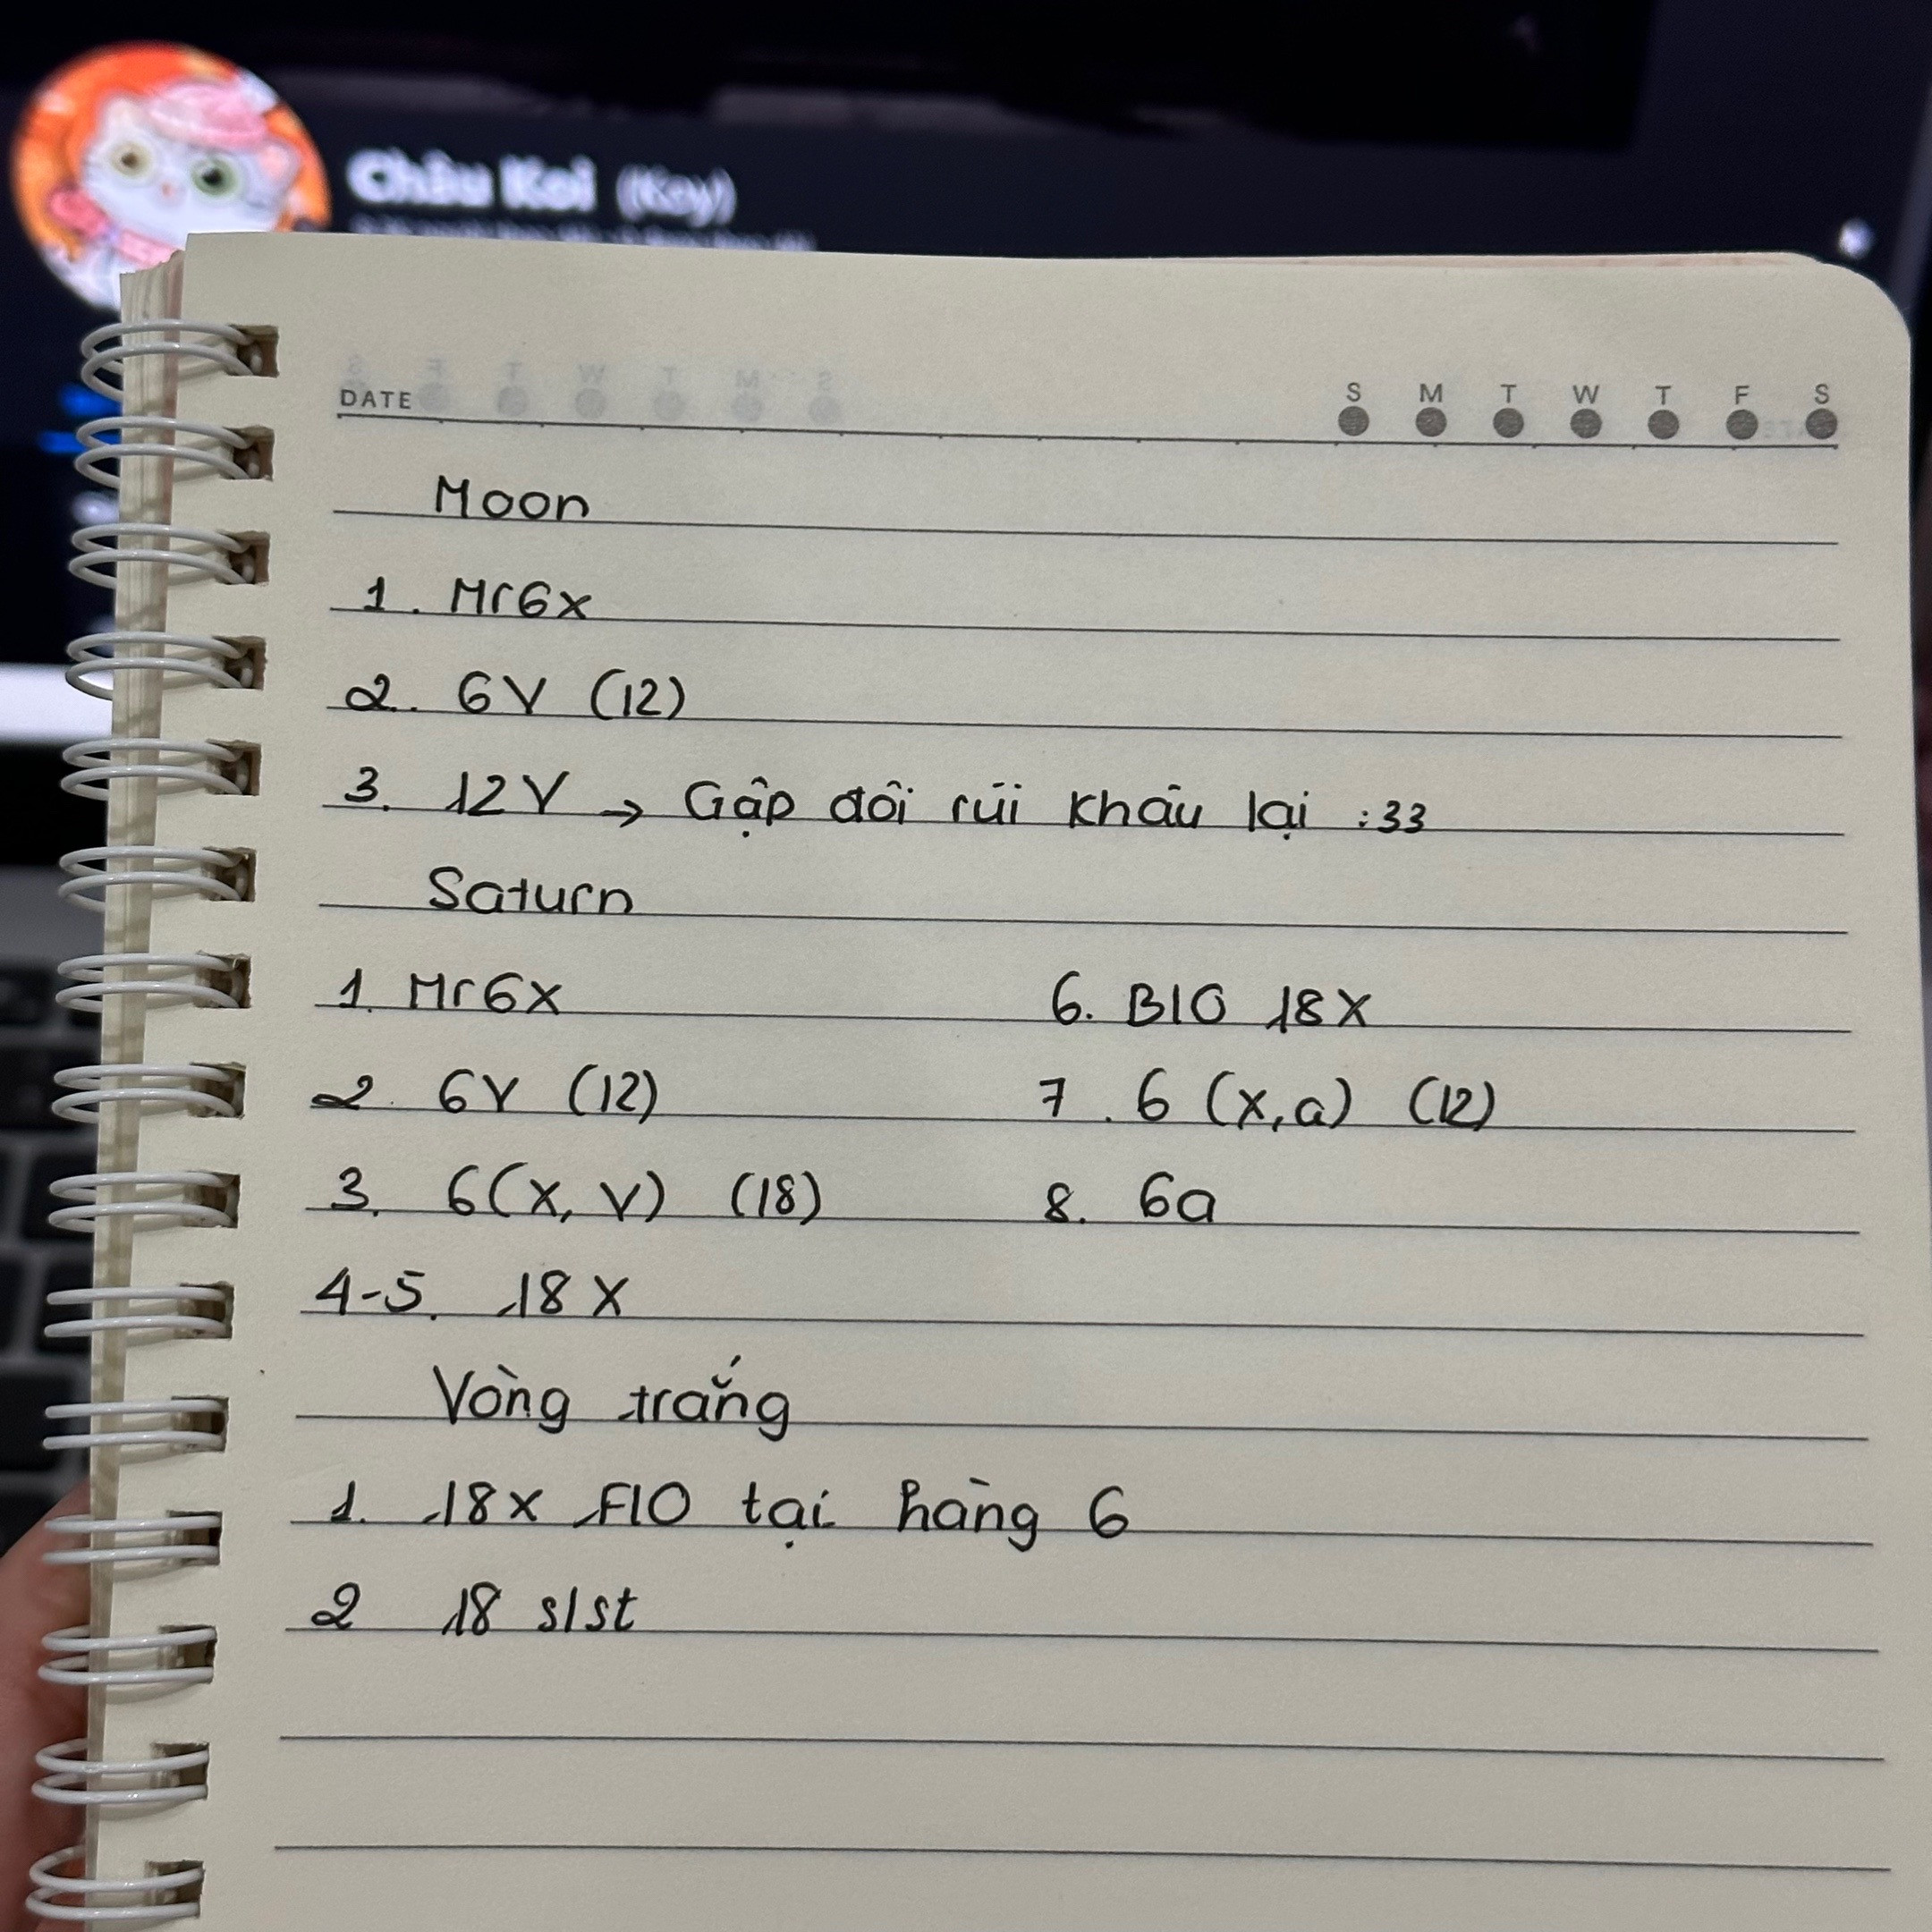 Châu Koi (Koy)
DATE
S M T W T F S
Moon
1. Mr6x
2. 6V (12)
3. 12V → Gập đôi rùi khâu lại :33
Saturn
1. Mr6X
2. 6V (12)
3. 6(X, V) (18)
4-5. 18X
6. BLO 18X
7. 6 (X,a) (12)
8. 6a
Vòng trắng
1. 18x FLO tại hàng 6
2 18 slst